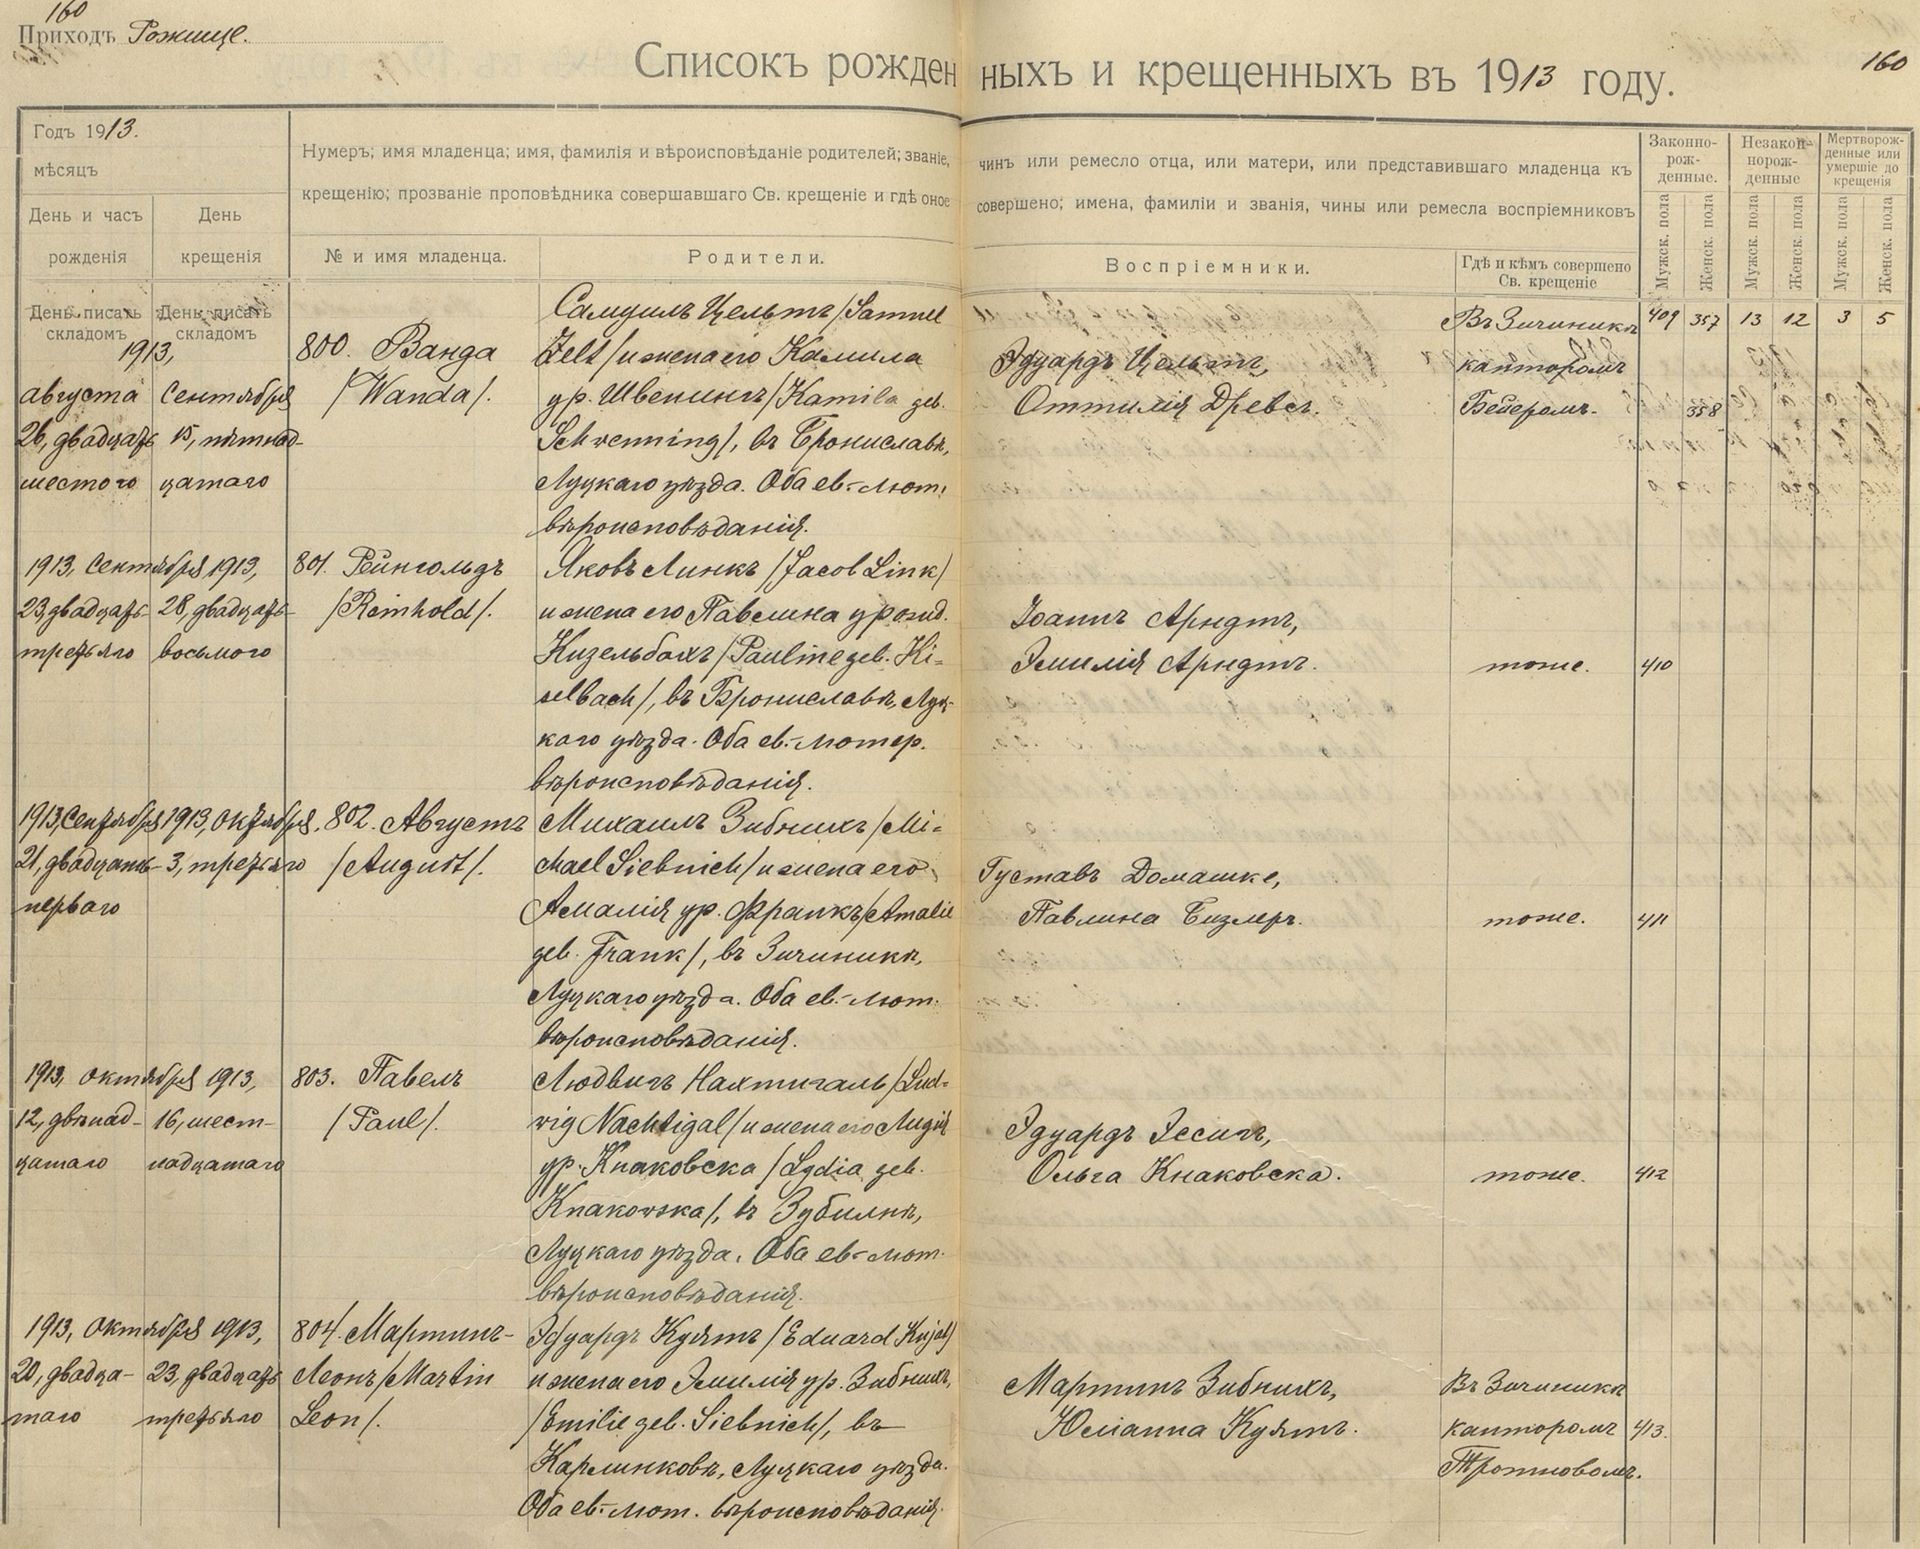 160
Приходъ Рожище.
Списокъ рожденныхъ и крещенныхъ въ 1913 году.
160
Годъ 1913.
мѣсяцъ
День и часъ рожденія
День крещенія
Нумеръ; имя младенца; имя, фамилія и вѣроисповѣданіе родителей; званіе, чинъ или ремесло отца, или матери, или представившаго младенца къ
крещенію; прозваніе проповѣдника совершавшаго Св. крещеніе и гдѣ оное совершено; имена, фамиліи и званія, чины или ремесла воспріемниковъ
№ и имя младенца.
Родители.
Воспріемники.
Гдѣ и кѣмъ совершено
Св. крещеніе
Законно-
рож-
денные.
Незакон-
норож-
денные
Мертворож-
денные или
умершіе до
крещенія
Мужск. пола
Женск. пола
Мужск. пола
Женск. пола
Мужск. пола
Женск. пола
День писать
складомъ
День писать
складомъ
409 357 13 12 3 5
1913,
августа
26, двадцать
шестого
сентября
15, пятнад-
цатаго
800. Ванда
/Wanda/.
Самуилъ Цельтъ /Samuel
Zelt/ и жена его Камила
ур. Швенингъ /Kamila geb.
Schwenning/, въ Брониславкѣ,
Луцкаго уѣзда. Оба ев.-лют.
вѣроисповѣданія.
Эдуардъ Цельтъ,
Оттилія Древсъ.
Въ Зичиникѣ
канторомъ
Бейеромъ.
358
1913, сентября
23, двадцать-
третьяго
1913,
28, двадцать-
восьмого
801. Рейнгольдъ
/Reinhold/.
Яковъ Линкъ /Jacob Link/
и жена его Павлина урожд.
Кизельбахъ /Pauline geb. Ki-
selbach/, въ Брониславкѣ, Луц-
каго уѣзда. Оба ев.-лютер.
вѣроисповѣданія.
Іоаннъ Арндтъ,
Эмилія Арндтъ.
тоже.
410
1913, сентября
21, двадцать-
перваго
1913, октября,
3, третьяго
802. Августъ
/August/.
Михаилъ Зибнихъ /Mi-
chael Siebnich/ и жена его
Амалія ур. Франкъ /Amalie
geb. Frank/, въ Зичиникѣ,
Луцкаго уѣзда. Оба ев.-лют.
вѣроисповѣданія.
Густавъ Домашке,
Павлина Бизлеръ.
тоже.
411
1913, октября
12, двѣнад-
цатаго
1913,
16, шест-
надцатаго
803. Павелъ
/Paul/.
Людвигъ Нахтигаль /Lud-
wig Nachtigal/ и жена его Лидія
ур. Кнаковска /Lydia geb.
Knakowska/, въ Зубилнѣ,
Луцкаго уѣзда. Оба ев.-лют.
вѣроисповѣданія.
Эдуардъ Эссигъ,
Ольга Кнаковска.
тоже.
412
1913, октября
20, двадца-
таго
1913,
23, двадцать
третьяго
804. Мартинъ-
Леонъ /Martin
Leon/.
Эдуардъ Куятъ /Eduard Kujat/
и жена его Эмилія ур. Зибнихъ,
/Emilie geb. Siebnich/, въ
Карлинковѣ, Луцкаго уѣзда.
Оба ев.-лют. вѣроисповѣданія.
Мартинъ Зибнихъ,
Юліанна Куятъ.
Въ Зичиникѣ
канторомъ
413.